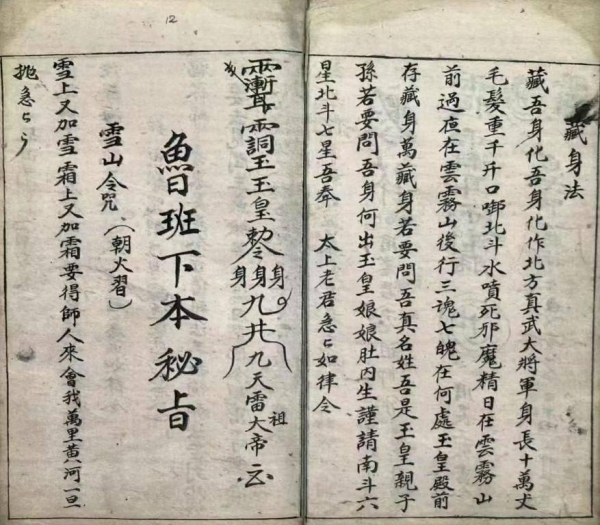 藏身法
藏吾身化吾身化作北方真武大將軍身長十萬丈
毛髮重千斤口啣北斗水噴死邪魔精日在雲霧山
前過夜在雲霧山後行三魂七魄在何處玉皇殿前
存藏身萬藏身若要問吾真名姓吾是玉皇親子
孫若要問吾身何出玉皇娘娘肚内生謹請南斗六
星北斗七星吾奉 太上老君急匕如律令
玉玉皇勅令身身身九井九天雷祖大帝
魯班下本秘旨
雪山令咒(朝火習)
雪上又加雪霜上又加霜要得師人來會我萬里黃河一旦
拋急匕
12